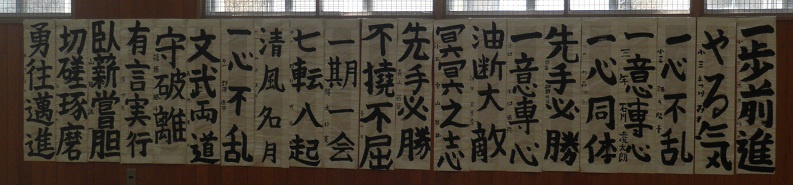 一歩前進
やる気
一心不乱
一意専心
一心同体
先手必勝
一意専心
油断大敵
冥冥之志
先手必勝
不撓不屈
一期一会
七転八起
清風名月
一心不乱
文武両道
守破離
有言実行
臥薪嘗胆
切磋琢磨
勇往邁進